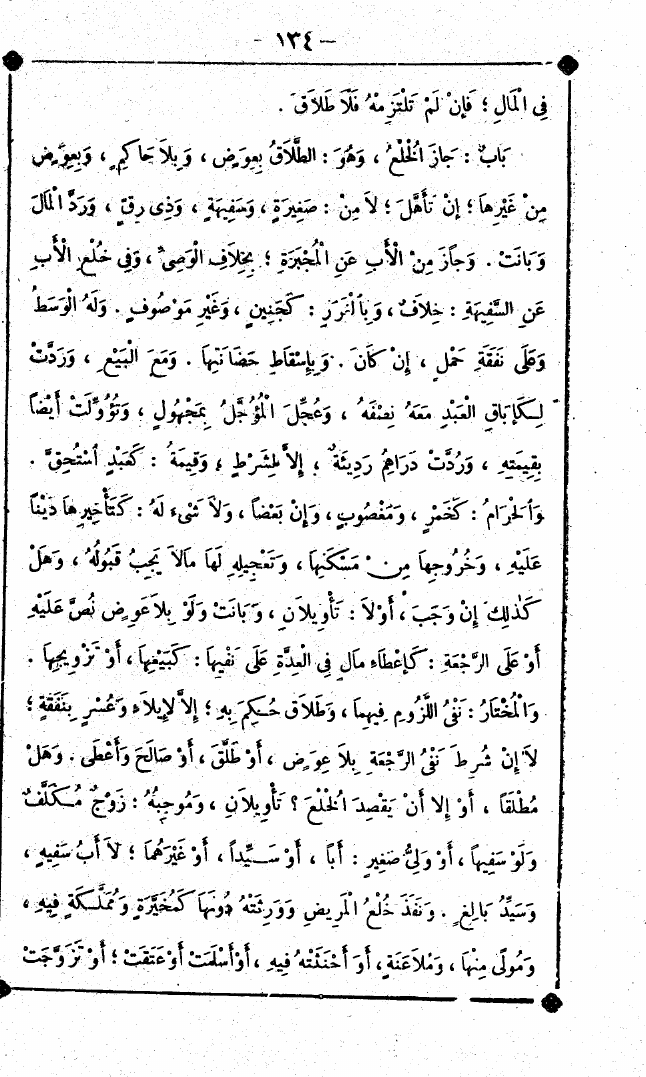 - ١٣٤ -
فِي الْمَالِ ؛ فَإِنْ لَمْ تَلْتَزِمْهُ فَلَا طَلَاقَ .
بَابٌ : جَازَ الْخُلْعُ ، وَهُوَ : الطَّلَاقُ بِعِوَضٍ ، وَبِلَا حَاكِمٍ ، وَبِعِوَضٍ
مِنْ غَيْرِهَا ؛ إِنْ تَأَهَّلَ ؛ لَا مِنْ : صَغِيرَةٍ ، وَسَفِيهَةٍ ، وَذِى رِقٍّ ، وَرَدَّ الْمَالَ
وَبَانَتْ . وَجَازَ مِنْ الْأَبِ عَنِ الْمُجْبَرَةِ ؛ بِخِلَافِ الْوَصِيِّ ، وَفِي خُلْعِ الْأَبِ
عَنِ السَّفِيهَةِ : خِلَافٌ ، وَبِالْغَرَرِ : كَجَنِينٍ ، وَغَيْرِ مَوْصُوفٍ . وَلَهُ الْوَسَطُ
وَعَلَى نَفَقَةِ حَمْلٍ ، إِنْ كَانَ . وَبِإِسْقَاطِ حَضَانَتِهَا . وَمَعَ الْبَيْعِ ، وَرَدَّتْ
لِكَإِبَاقِ الْعَبْدِ مَعَهُ نِصْفَهُ ، وَعُجِّلَ الْمُؤَجَّلُ بِمَجْهُولٍ ، وَتُؤُوِّلَتْ أَيْضاً
بِقِيمَتِهِ ، وَرُدَّتْ دَرَاهِمُ رَدِيئَةٌ ، إِلَّا لِشَرْطٍ ، وَقِيمَةُ : كَعَبْدٍ اسْتُحِقَّ .
وَالْحَرَامُ : كَخَمْرٍ ، وَمَغْصُوبٍ ، وَإِنْ بَعْضاً ، وَلَا شَىْءَ لَهُ : كَتَأْخِيرِهَا دَيْناً
عَلَيْهِ ، وَخُرُوجِهَا مِنْ مَسْكَنِهَا ، وَتَعْجِيلِهِ لَهَا مَالَا يَجِبُ قَبُولُهُ ، وَهَلْ
كَذٰلِكَ إِنْ وَجَبَ ، أَوْلَا : تَأْوِيلَانِ ، وَبَانَتْ وَلَوْ بِلَا عِوَضٍ نُصَّ عَلَيْهِ
أَوْ عَلَى الرَّجْعَةِ : كَإِعْطَاءِ مَالٍ فِي الْعِدَّةِ عَلَى نَفْيِهَا : كَبَيْعِهَا ، أَوْ تَزْوِيجِهَا .
وَالْمُخْتَارُ : نَفْىُ اللُّزُومِ فِيهِمَا ، وَطَلَاقٍ حُكِمَ بِهِ ؛ إِلَّا لِإِيلَاءٍ وَعُسْرٍ بِنَفَقَةٍ ؛
لَا إِنْ شُرِطَ نَفْىُ الرَّجْعَةِ بِلَا عِوَضٍ ، أَوْ طَلَّقَ ، أَوْ صَالَحَ وَأَعْطَى . وَهَلْ
مُطْلَقاً ، أَوْ إِلَا أَنْ يَقْصِدَ الْخُلْعَ ؟ تَأْوِيلَانِ ، وَمُوجِبُهُ : زَوْجٌ مُكَلَّفٌ
وَلَوْ سَفِيهاً ، أَوْ وَلِيُّ صَغِيرٍ : أَباً ، أَوْ سَيِّداً ، أَوْ غَيْرَهُمَا ؛ لَا أَبُ سَفِيهٍ ،
وَسَيِّدُ بَالِغٍ . وَنَفَذَ خُلْعُ الْمَرِيضِ وَوَرِثَتْهُ دُونَهَا كَمُخَيَّرَةٍ وَمُمَلَّكَةٍ فِيهِ ،
وَمُولًى مِنْهَا ، وَمُلَاعَنَةٍ ، أَوَ أَحْنَثَتْهُ فِيهِ ، أَوْأَسْلَمَتْ أَوْعَتَقَتْ ؛ أَوْ تَزَوَّجَتْ